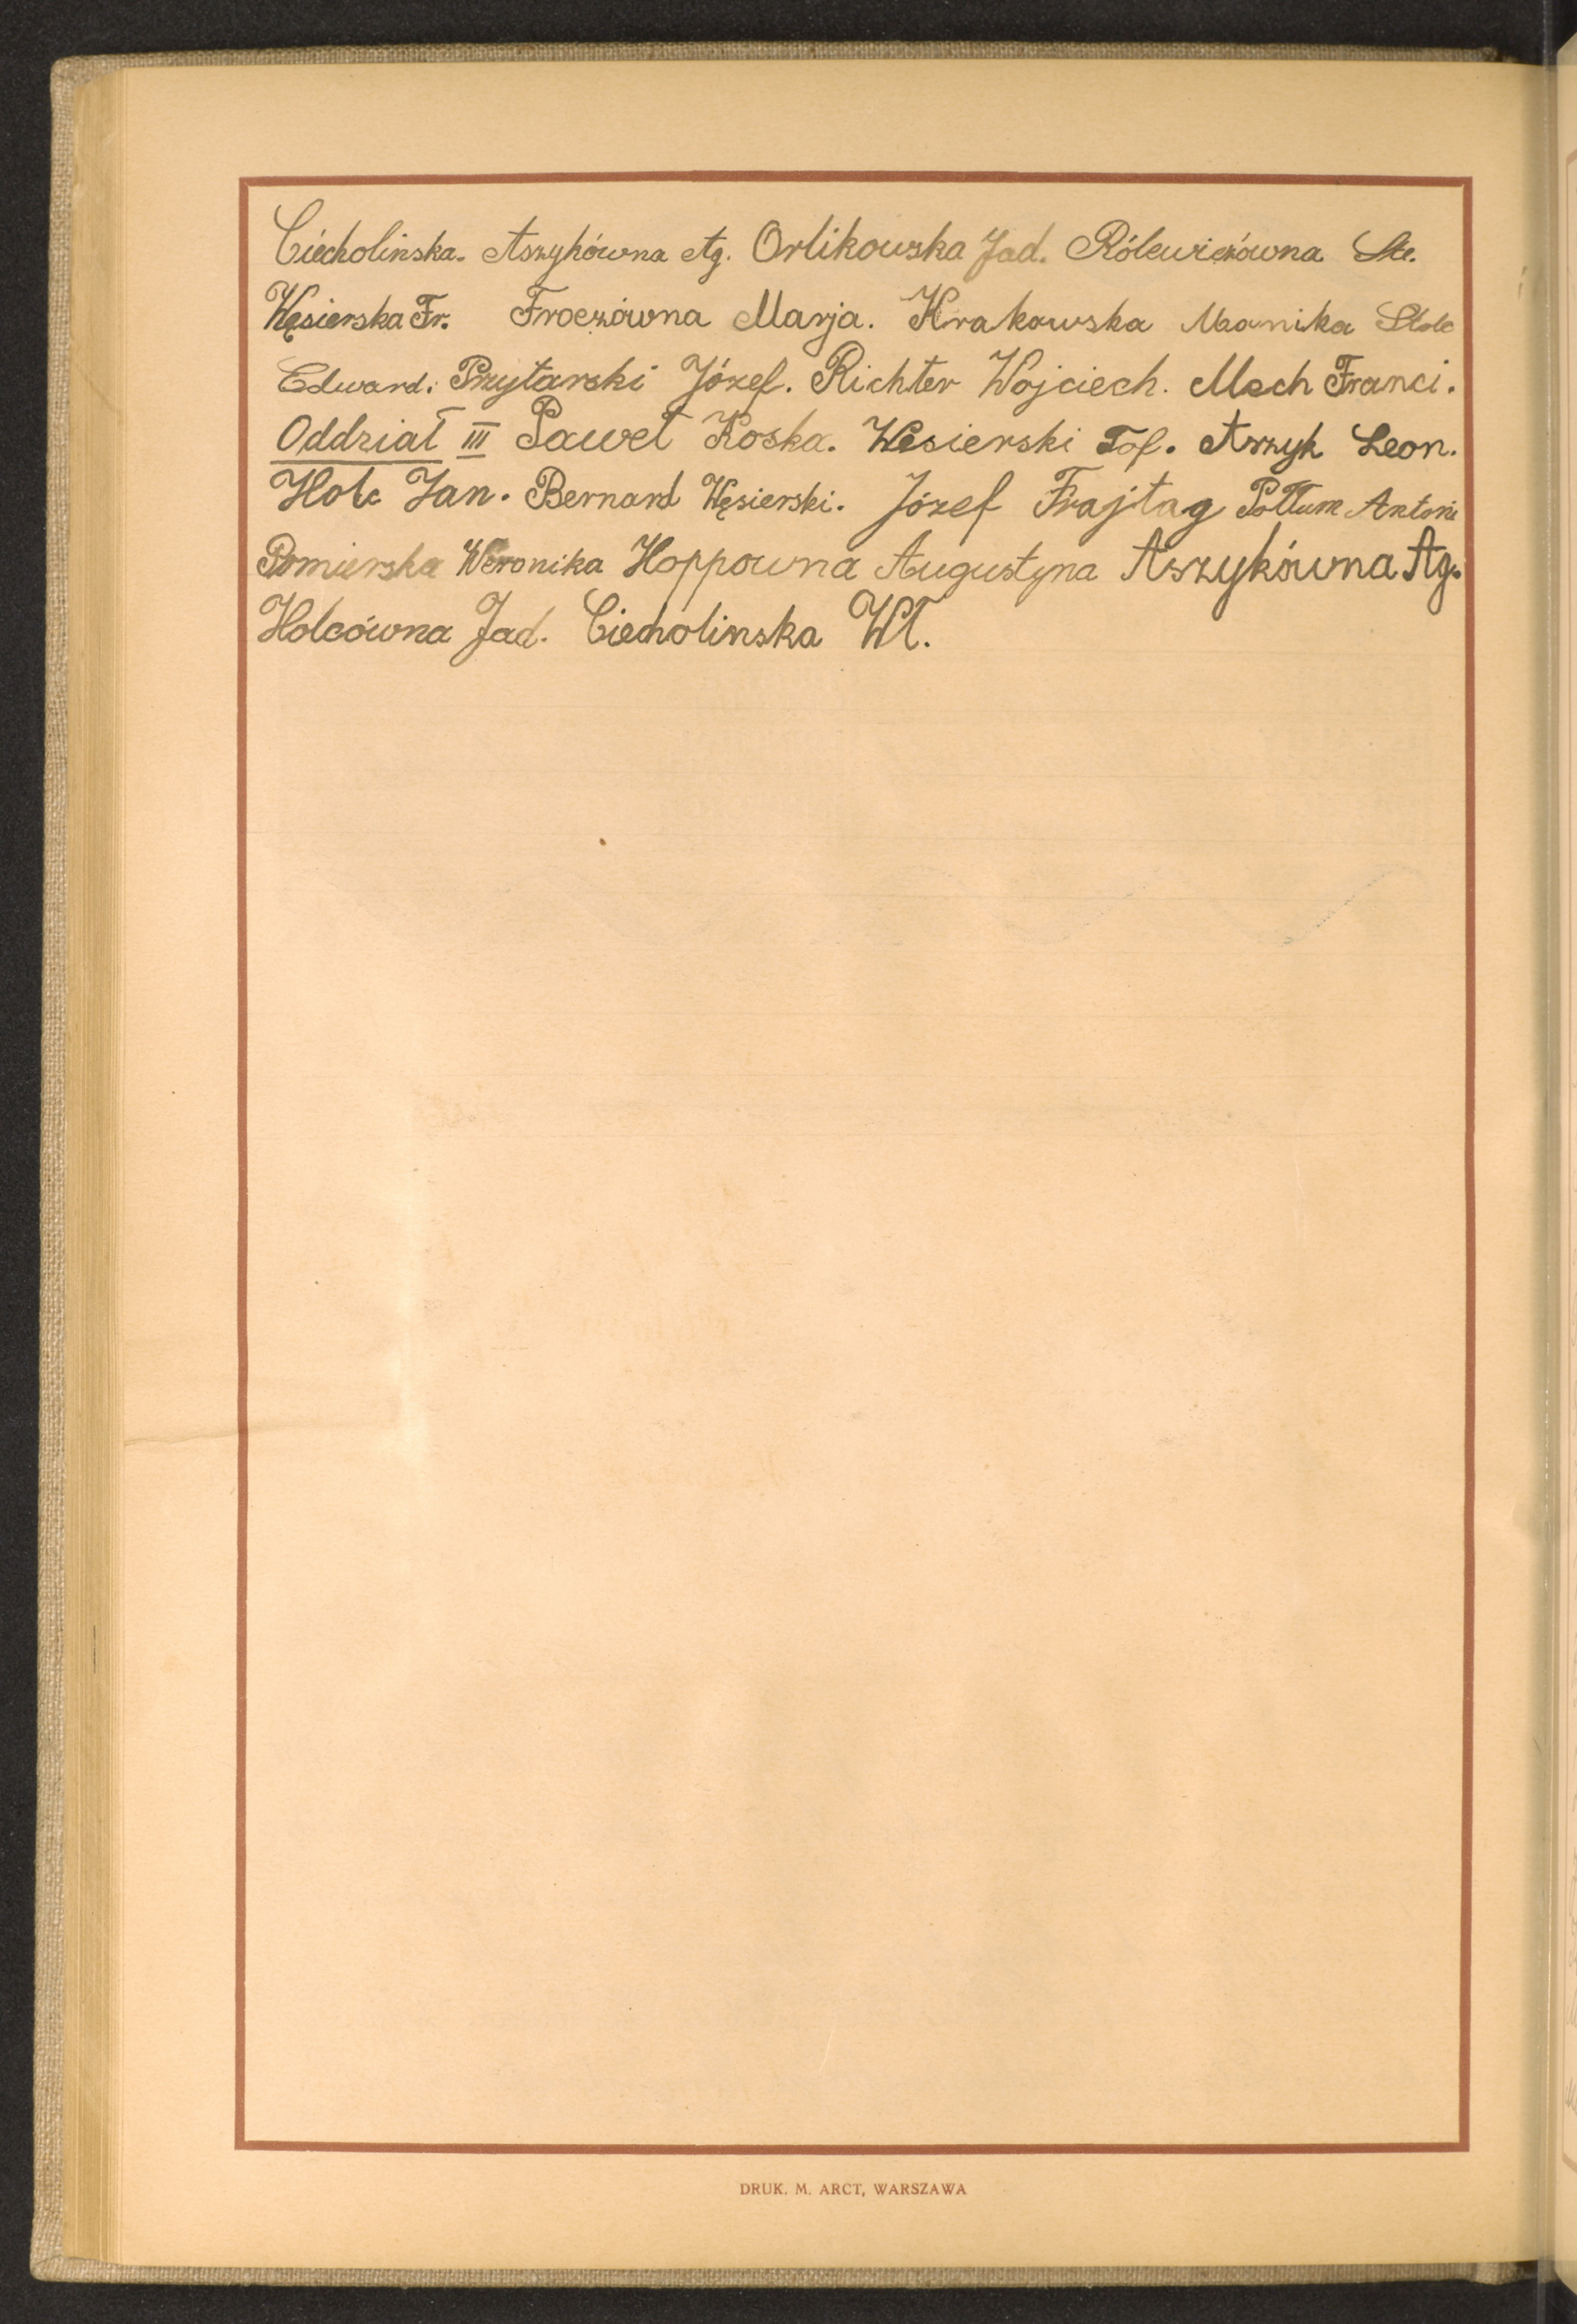 Ciecholinska. Aszykówna Ag. Orlikowska Jad. Rólewiczówna Ste.
Węsierska Fr. Froezówna Marja. Krakowska Monika Stolc
Edward. Przytarski Józef. Richter Wojciech. Mech Franci.
Oddział III Paweł Koska. Wesierski Tof. Aszyk Leon.
Holc Jan. Bernard Węsierski. Józef Frajtag Pottum Antoni
Pomierska Weronika Hoppowna Augustyna Aszykówna Ag.
Holcówna Jad. Ciecholinska Wł.
DRUK. M. ARCT, WARSZAWA